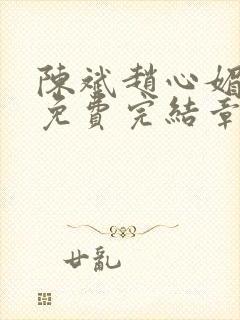 陳斌趙心媚
免費完結章
廿亂